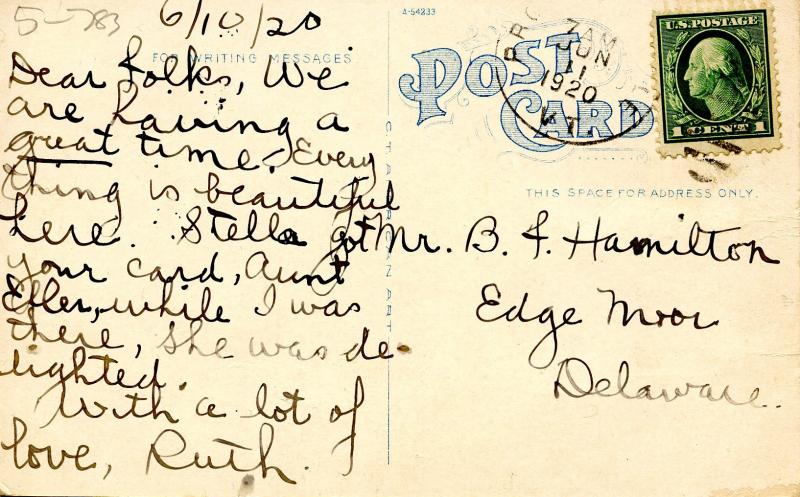 5-783
6/10/20
FOR WRITING MESSAGES
Dear folks, We
are having a
great time. Every
thing is beautiful
here. Stella got
your card, Aunt
Effer, while I was
there, she was de-
lighted.
With a lot of
love, Ruth.
A-54233
POST
CARD
7 AM
JUN
11
1920
VT.
U.S. POSTAGE
1 CENT 1
THIS SPACE FOR ADDRESS ONLY.
Mr. B. F. Hamilton
Edge Moor
Delaware.